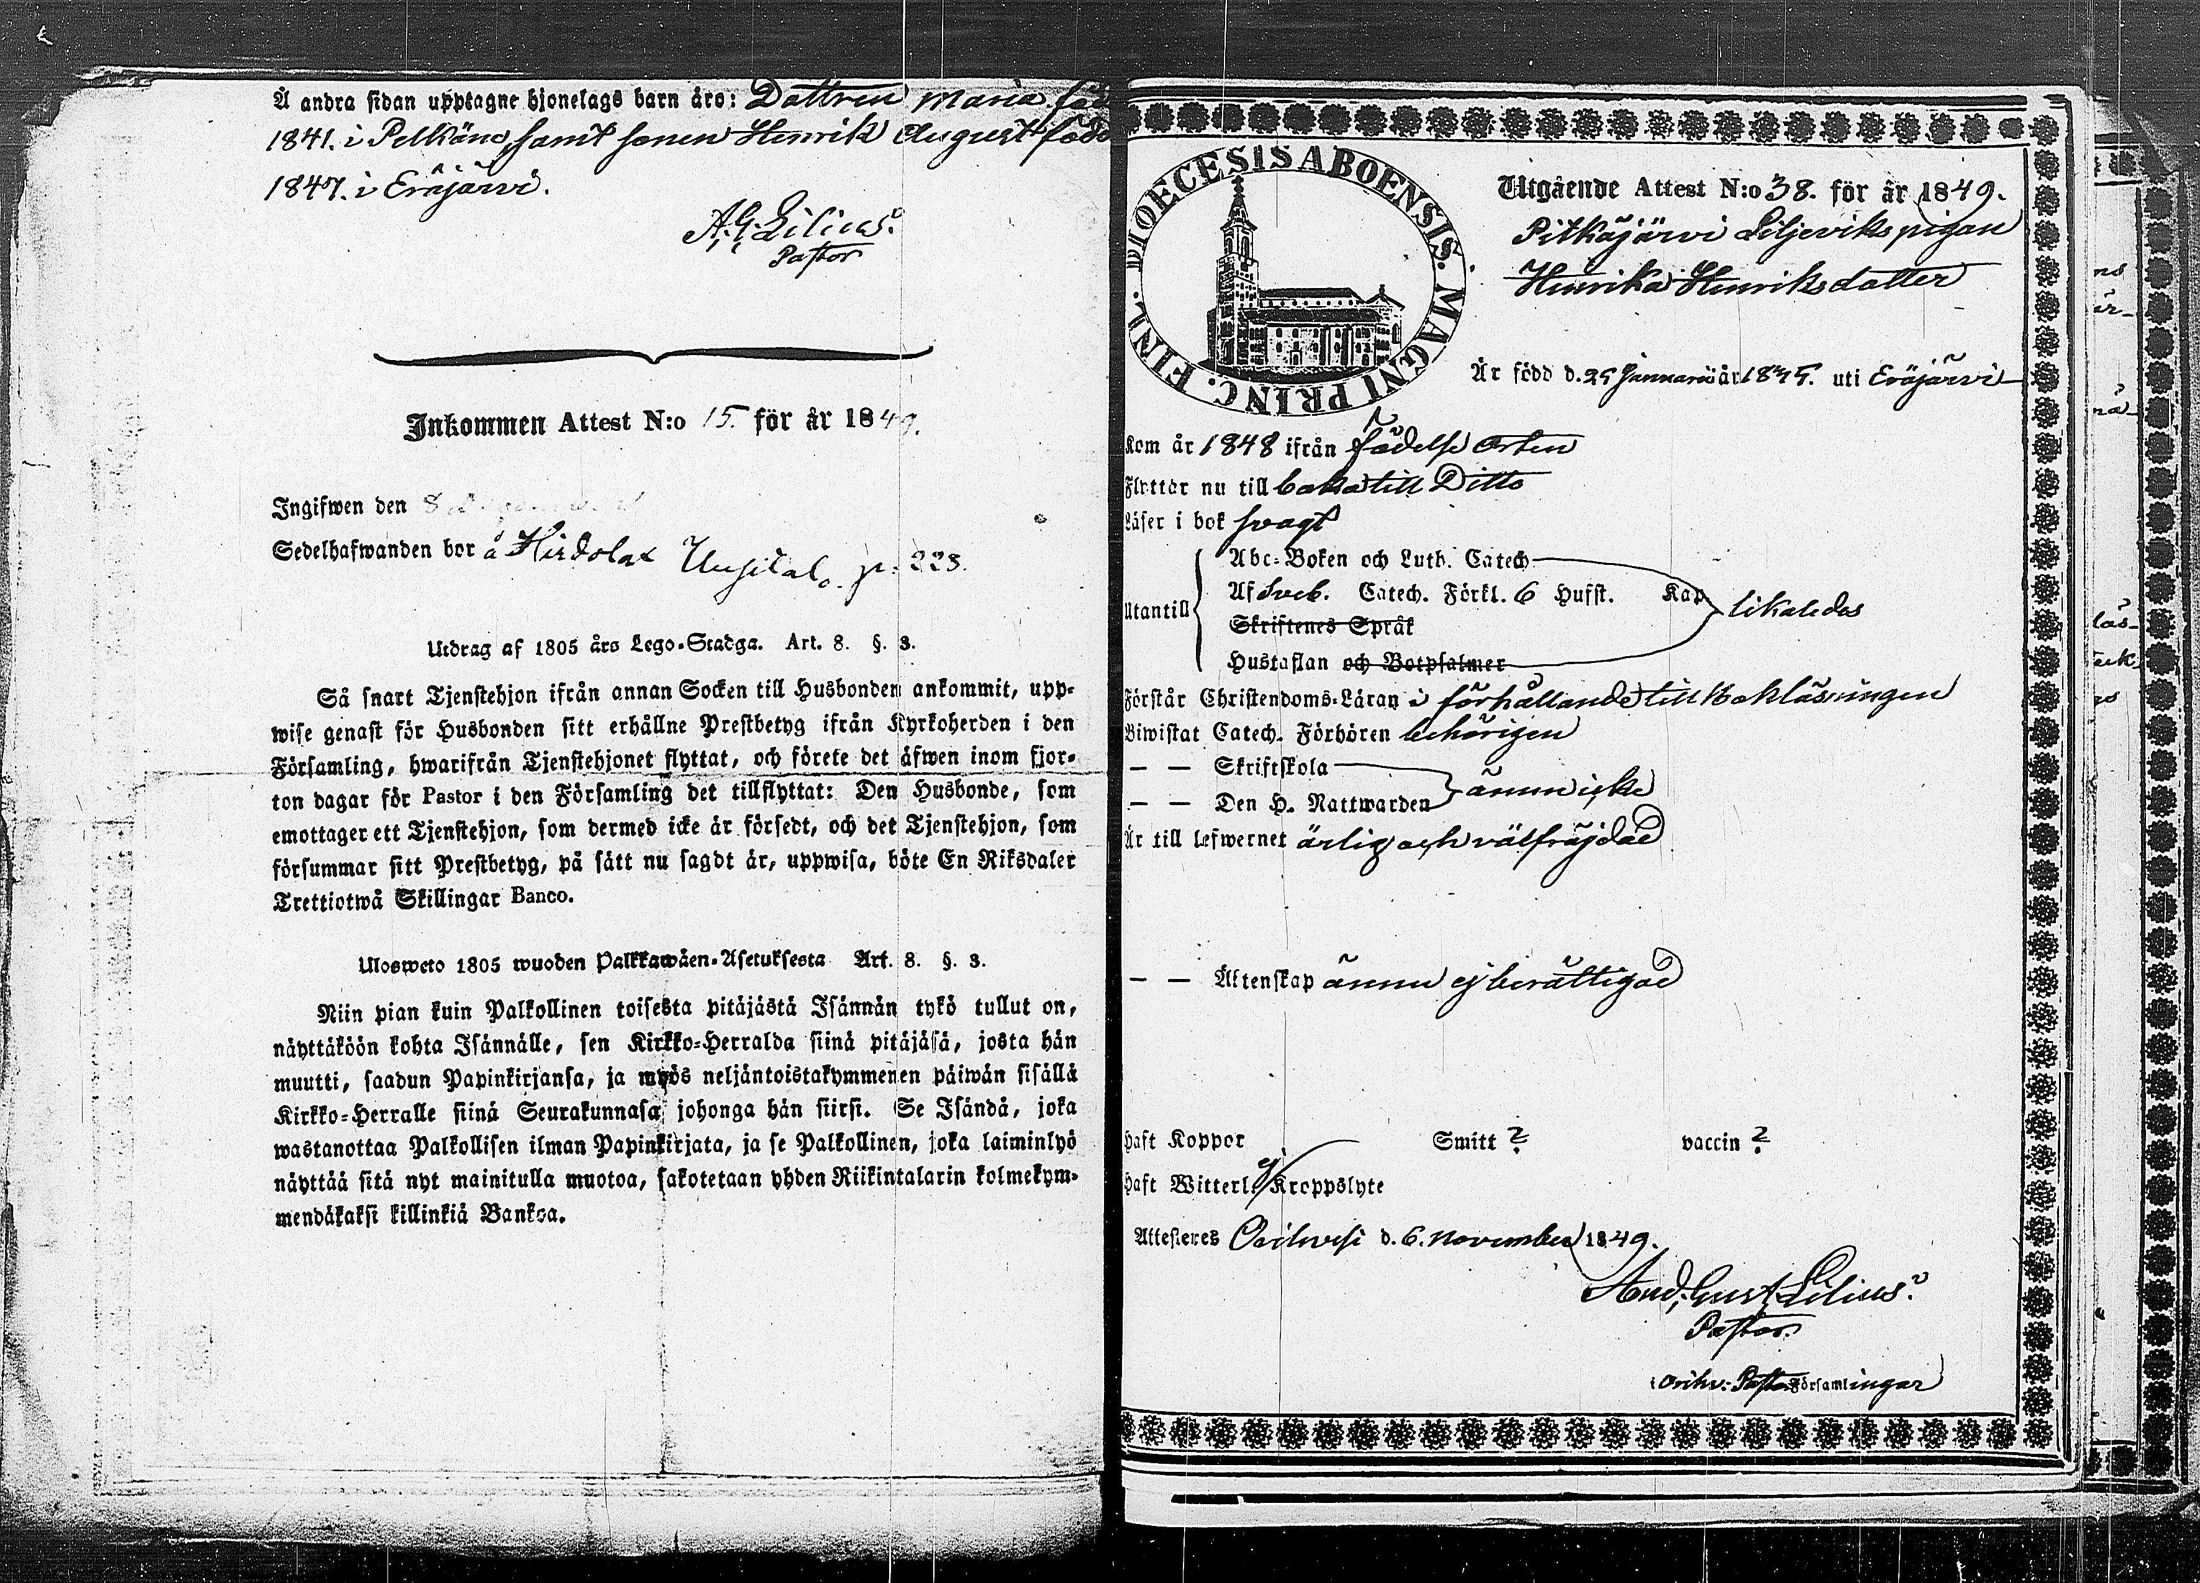 Å andra sidan upptagne hjonelags barn äro: Dottren Maria föd
1841. i Pelkäne, samt sonen Henrik August född
1847. i Eräjärvi.
A. G. Lilius.
Pastor
Inkommen Attest N:o 15. för år 1849.
Ingifwen den 8
Sedelhafwanden bor å Hirdolax Uusitalo. p. 223.
Utdrag af 1805 års Lego-Stadga. Art. 8. §. 3.
Så snart Tjenstehjon ifrån annan Socken till Husbonden ankommit, upp-
wise genast för Husbonden sitt erhållne Prestbetyg ifrån Kyrkoherden i den
Församling, hwarifrån Tjenstehjonet flyttat, och förete det äfwen inom fjor-
ton dagar för Pastor i den Församling det tillflyttat: Den Husbonde, som
emottager ett Tjenstehjon, som dermed icke är försedt, och det Tjenstehjon, som
försummar sitt Prestbetyg, på sätt nu sagdt är, uppwisa, böte En Riksdaler
Trettiotwå Skillingar Banco.
Ulosweto 1805 wuoden Palkkawäen-Asetuksesta Art. 8. §. 3.
Niin pian kuin Palkollinen toisesta pitäjästä Isännän tykö tullut on,
näyttäköön kohta Isännälle, sen Kirkko-Herralda siinä pitäjäsä, josta hän
muutti, saadun Papinkirjansa, ja myös neljäntoistakymmenen päiwän sisällä
Kirkko-Herralle siinä Seurakunnasa johonga hän siirsi. Se Isändä, joka
wastanottaa Palkollisen ilman Papinkirjata, ja se Palkollinen, joka laiminlyö
näyttää sitä nyt mainitulla muotoa, sakotetaan yhden Riikintalarin kolmekym-
mendäkaksi killinkiä Bankoa.
DIOECESIS ABOENSIS. MAGNI PRINC. FINL.
Utgående Attest N:o 38. för år 1849.
Pitkäjärvi Liljeviks pigan
Henrika Henriksdotter
Är född d. 25 Januarii år 1835. uti Eräjärvi
Kom år 1848 ifrån födelse orten
Flyttar nu till baka till Ditto
Läser i bok svagt
Utantill
Abc-Boken och Luth. Catech
Af Sveb. Catech. Förkl. 6 Hufst. Kap
Skriftenes Språk
Hustaflan och Botpsalmer
likaledes
Förstår Christendoms-Läran i förhållande till bokläsningen
Biwistat Catech. Förhören behörigen
— — Skriftskola
— — Den H. Nattwarden
ännu icke
Är till lefwernet ärlig och välfräjdad
— — Äktenskap ännu ej berättigad
Haft Koppor Smitt ? vaccin ?
Haft Witterl. ej Kroppslyte
Attesteres Orihvesi d. 6. November 1849.
And. Gust. Lilius.
Pastor.
i Orihv: Pastors Församlingar